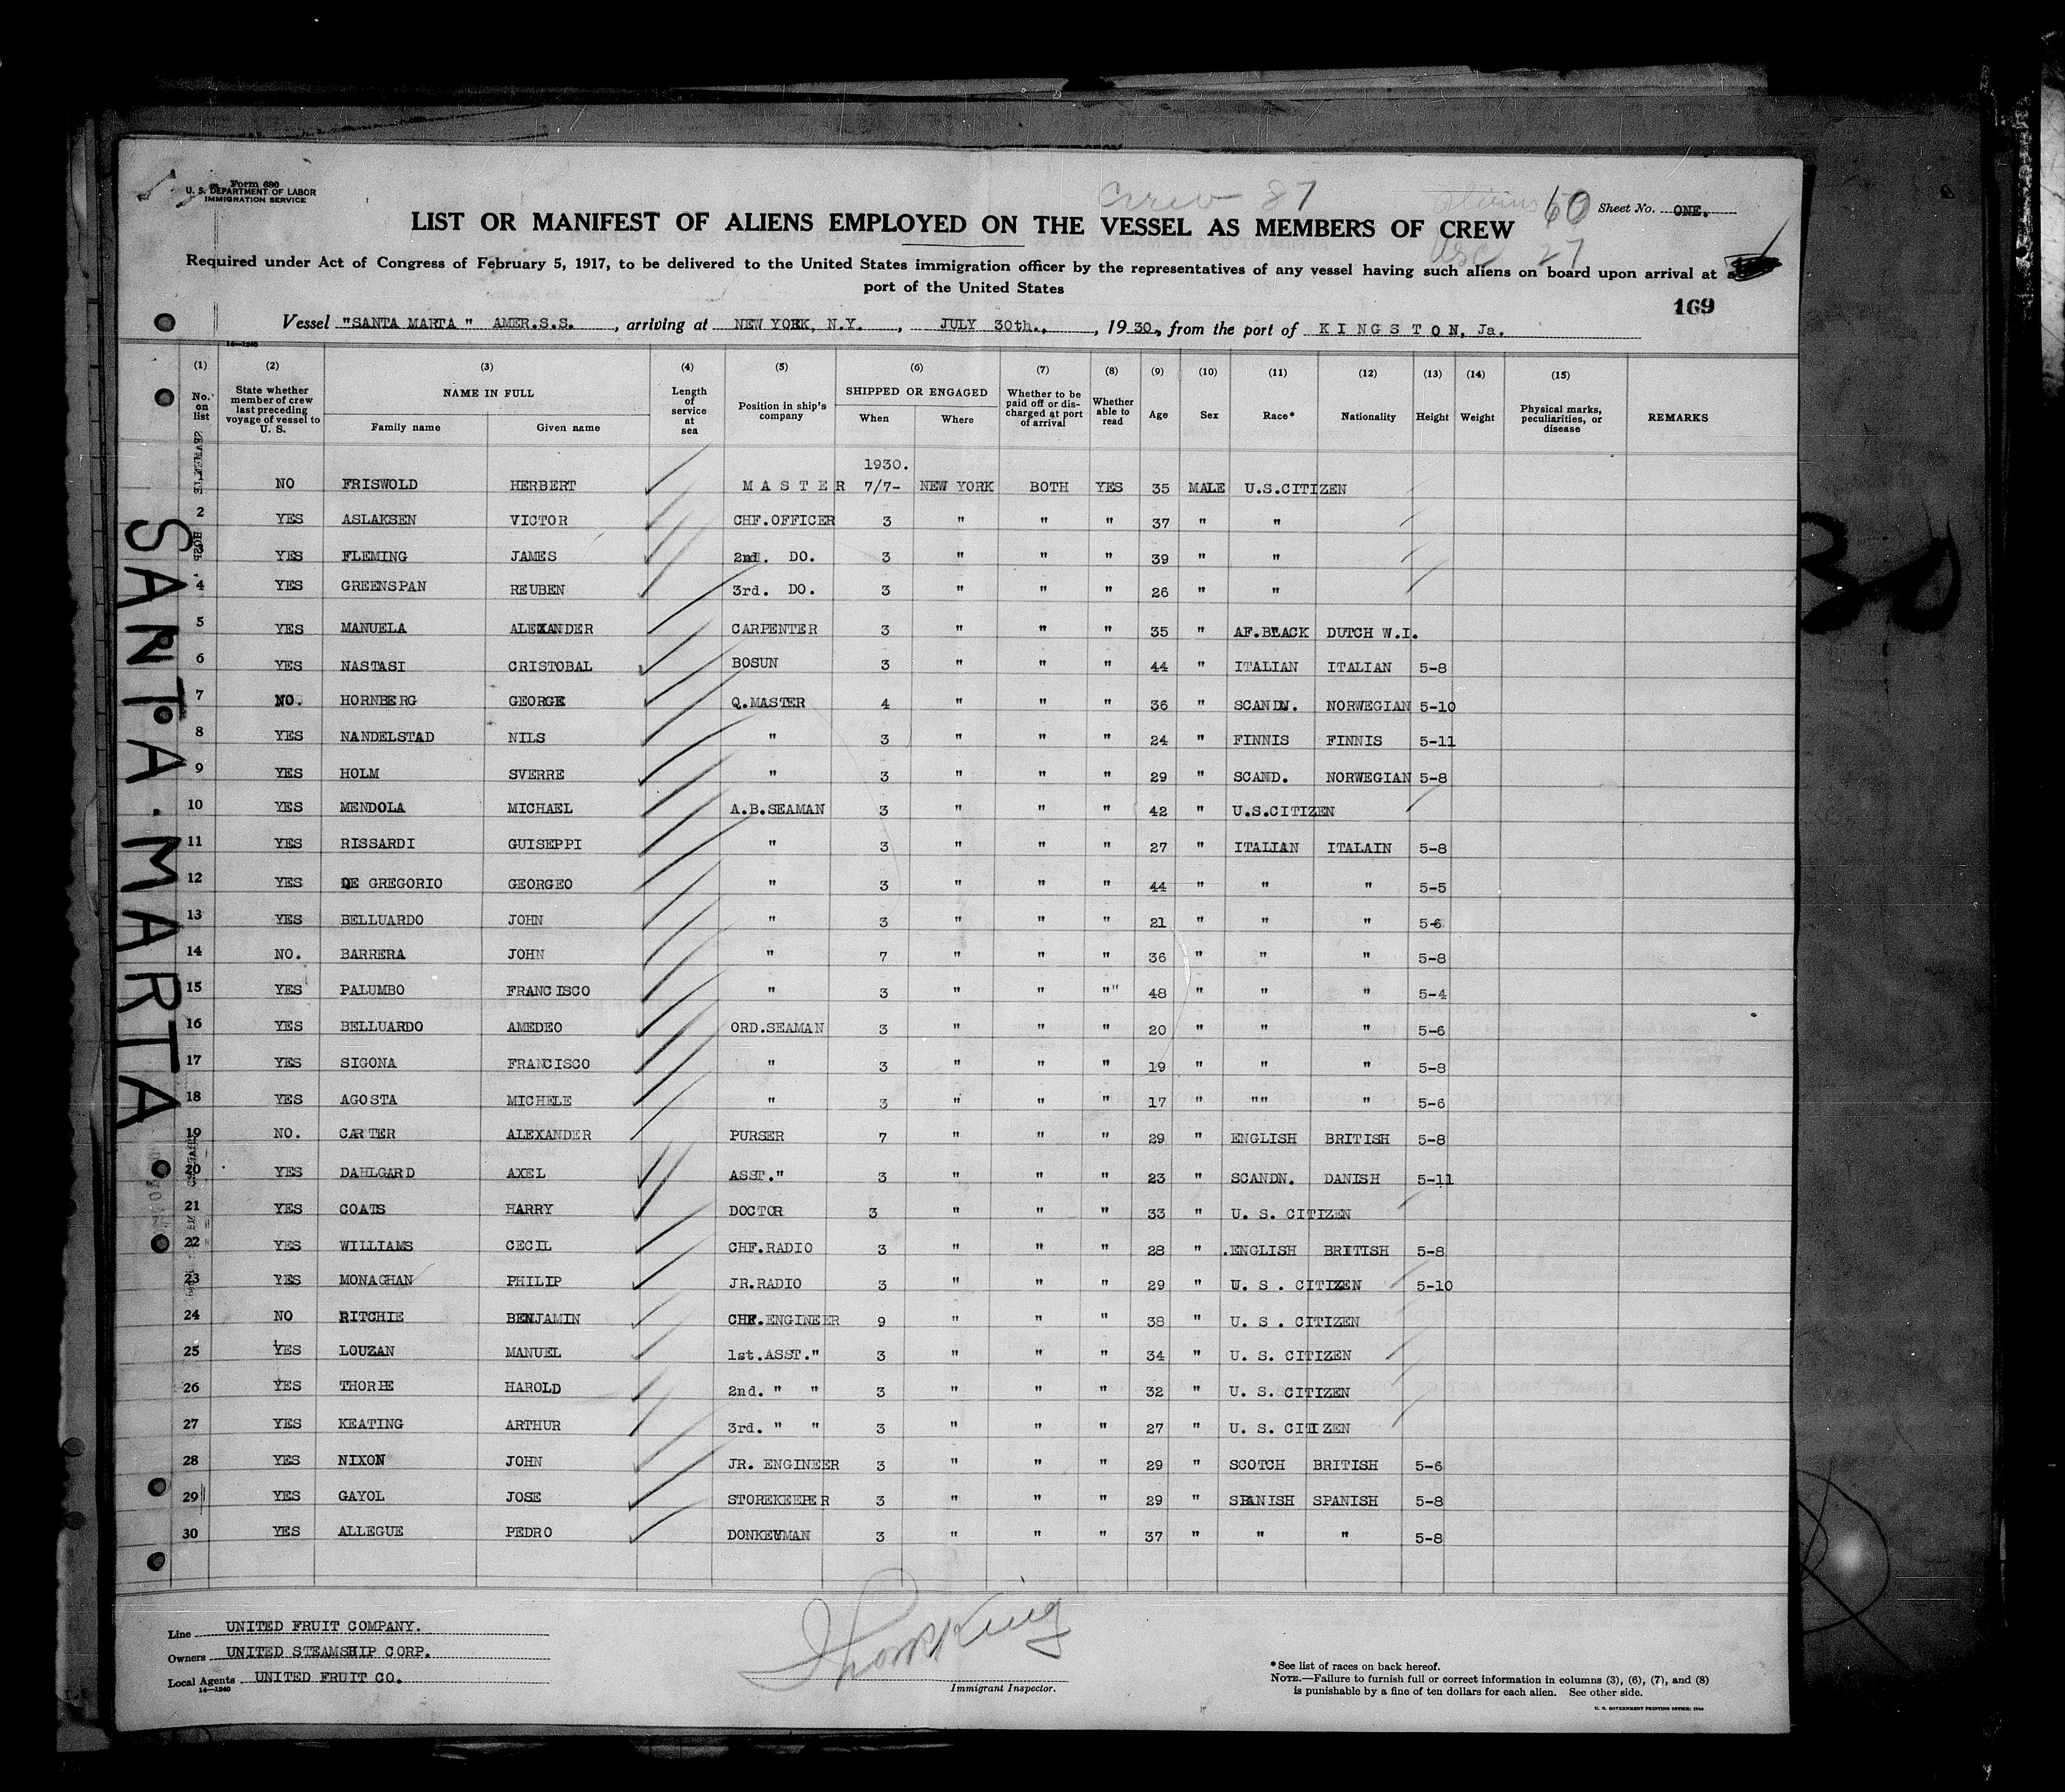 Form 680
U. S. DEPARTMENT OF LABOR
IMMIGRATION SERVICE
Crew 87
Aliens 60
USC 27
Sheet No. ONE.
LIST OR MANIFEST OF ALIENS EMPLOYED ON THE VESSEL AS MEMBERS OF CREW
Required under Act of Congress of February 5, 1917, to be delivered to the United States immigration officer by the representatives of any vessel having such aliens on board upon arrival at a
port of the United States
169
Vessel "SANTA MARTA" AMER.S.S. , arriving at NEW YORK, N.Y. , JULY 30th., , 1930, from the port of KINGSTON, Ja.
14—1240
(1) (2) (3) (4) (5) (6) (7) (8) (9) (10) (11) (12) (13) (14) (15)
No. on list State whether member of crew last preceding voyage of vessel to U. S. NAME IN FULL Family name Given name Length of service at sea Position in ship's company SHIPPED OR ENGAGED When Where Whether to be paid off or discharged at port of arrival Whether able to read Age Sex Race* Nationality Height Weight Physical marks, peculiarities, or disease REMARKS
1930.
NO FRISWOLD HERBERT MASTER 7/7- NEW YORK BOTH YES 35 MALE U.S.CITIZEN
2 YES ASLAKSEN VICTOR CHF.OFFICER 3 " " " 37 " "
YES FLEMING JAMES 2nd. DO. 3 " " " 39 " "
4 YES GREENSPAN REUBEN 3rd. DO. 3 " " " 26 " "
5 YES MANUELA ALEXANDER CARPENTER 3 " " " 35 " AF.BLACK DUTCH W.I.
6 YES NASTASI CRISTOBAL BOSUN 3 " " " 44 " ITALIAN ITALIAN 5-8
7 NO. HORNBERG GEORGE Q.MASTER 4 " " " 36 " SCANDN. NORWEGIAN 5-10
8 YES NANDELSTAD NILS " 3 " " " 24 " FINNIS FINNIS 5-11
9 YES HOLM SVERRE " 3 " " " 29 " SCAND. NORWEGIAN 5-8
10 YES MENDOLA MICHAEL A.B.SEAMAN 3 " " " 42 " U.S.CITIZEN
11 YES RISSARDI GUISEPPI " 3 " " " 27 " ITALIAN ITALAIN 5-8
12 YES DE GREGORIO GEORGEO " 3 " " " 44 " " " 5-5
13 YES BELLUARDO JOHN " 3 " " " 21 " " " 5-6
14 NO. BARRERA JOHN " 7 " " " 36 " " " 5-8
15 YES PALUMBO FRANCISCO " 3 " " "" 48 " " " 5-4
16 YES BELLUARDO AMEDEO ORD.SEAMAN 3 " " " 20 " " " 5-6
17 YES SIGONA FRANCISCO " 3 " " " 19 " " " 5-8
18 YES AGOSTA MICHELE " 3 " " " 17 " "" " 5-6
19 NO. CARTER ALEXANDER PURSER 7 " " " 29 " ENGLISH BRITISH 5-8
20 YES DAHLGARD AXEL ASST." 3 " " " 23 " SCANDN. DANISH 5-11
21 YES COATS HARRY DOCTOR 3 " " " 33 " U. S. CITIZEN
22 YES WILLIAMS CECIL CHF.RADIO 3 " " " 28 " .ENGLISH BRITISH 5-8
23 YES MONAGHAN PHILIP JR.RADIO 3 " " " 29 " U. S . CITIZEN 5-10
24 NO RITCHIE BENJAMIN CHF.ENGINEER 9 " " " 38 " U. S . CITIZEN
25 YES LOUZAN MANUEL 1st.ASST." 3 " " " 34 " U. S. CITIZEN
26 YES THORIE HAROLD 2nd. " " 3 " " " 32 " U. S. CITIZEN
27 YES KEATING ARTHUR 3rd. " " 3 " " " 27 " U. S. CITIZEN
28 YES NIXON JOHN JR. ENGINEER 3 " " " 29 " SCOTCH BRITISH 5-6
29 YES GAYOL JOSE STOREKEEPER 3 " " " 29 " SPANISH SPANISH 5-8
30 YES ALLEGUE PEDRO DONKEYMAN 3 " " " 37 " " " 5-8
SANTA.MARTA
30
Line UNITED FRUIT COMPANY.
Owners UNITED STEAMSHIP CORP.
Local Agents UNITED FRUIT CO.
14—1240
Immigrant Inspector.
*See list of races on back hereof.
NOTE.—Failure to furnish full or correct information in columns (3), (6), (7), and (8)
is punishable by a fine of ten dollars for each alien. See other side.
U. S. GOVERNMENT PRINTING OFFICE: 1930